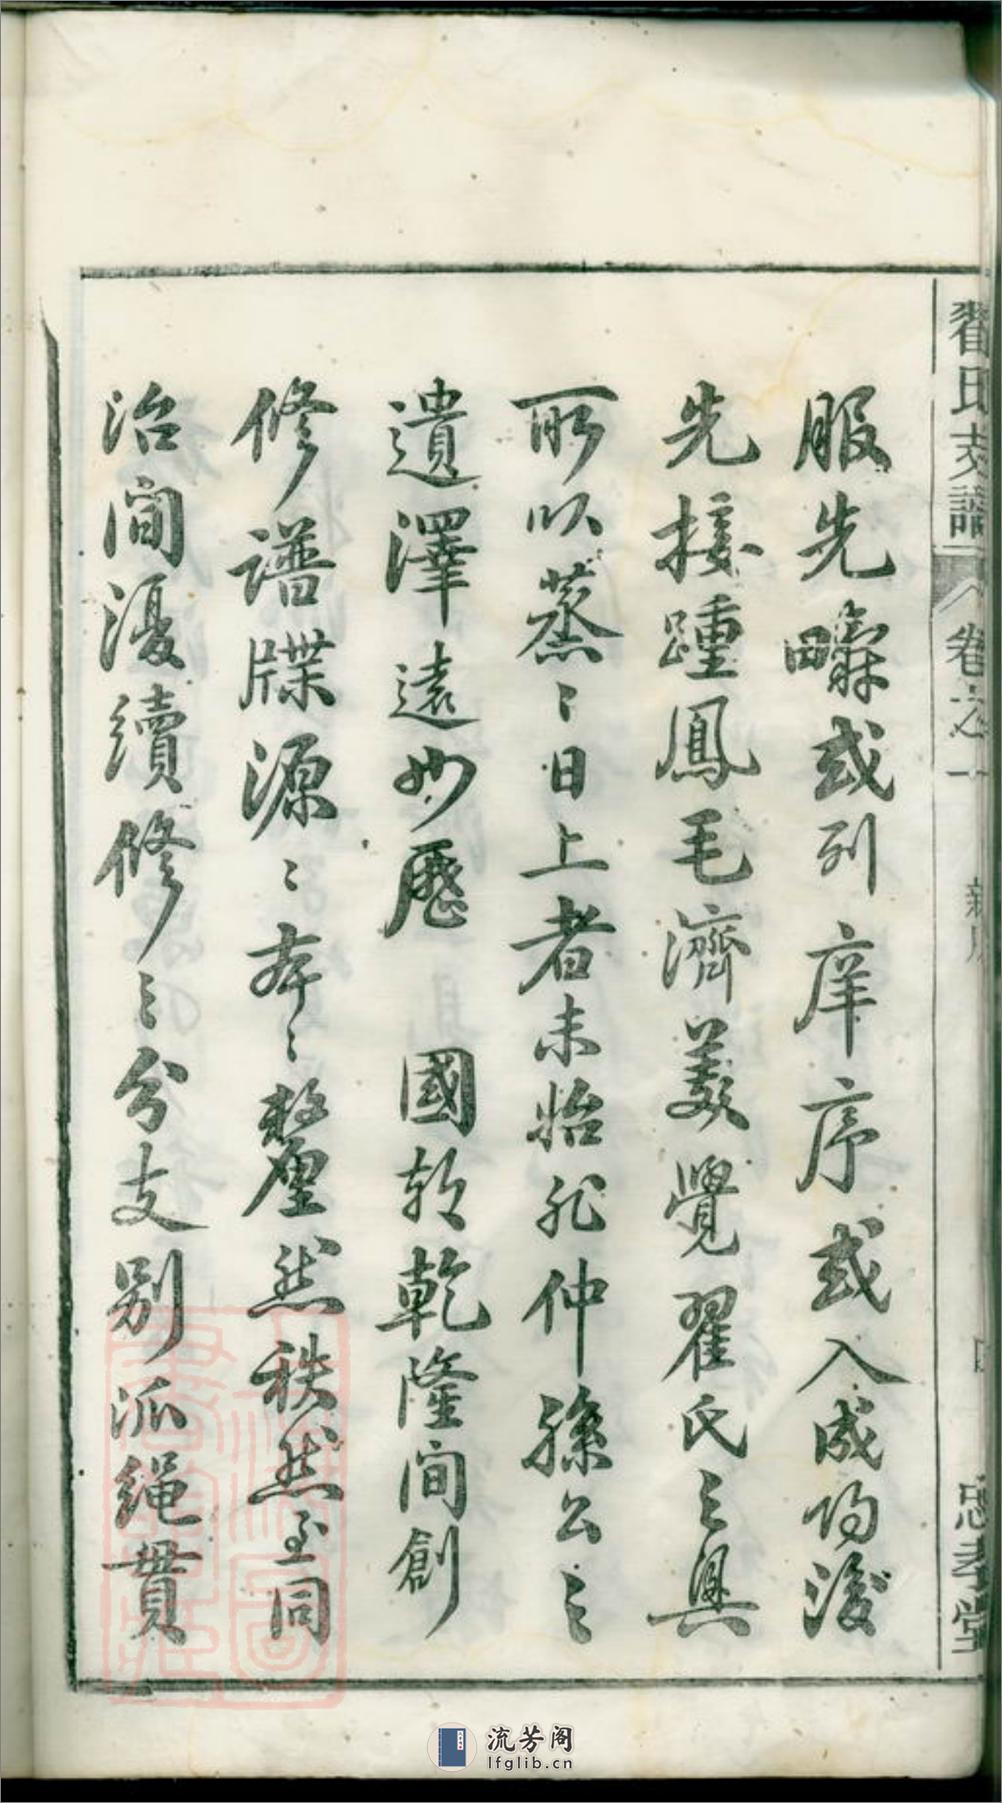 翟氏支譜 卷之一 四 忠孝堂
服先疇或列庠序或入成均後
先接踵鳳毛濟美覺翟氏之興
所以蒸〻日上者未始非仲孫公之
遺澤遠也歷 國朝乾隆間創
修譜牒源〻本〻釐然秩然至同
治間復續修之分支別派繩貫
流芳阁
lfglib.cn